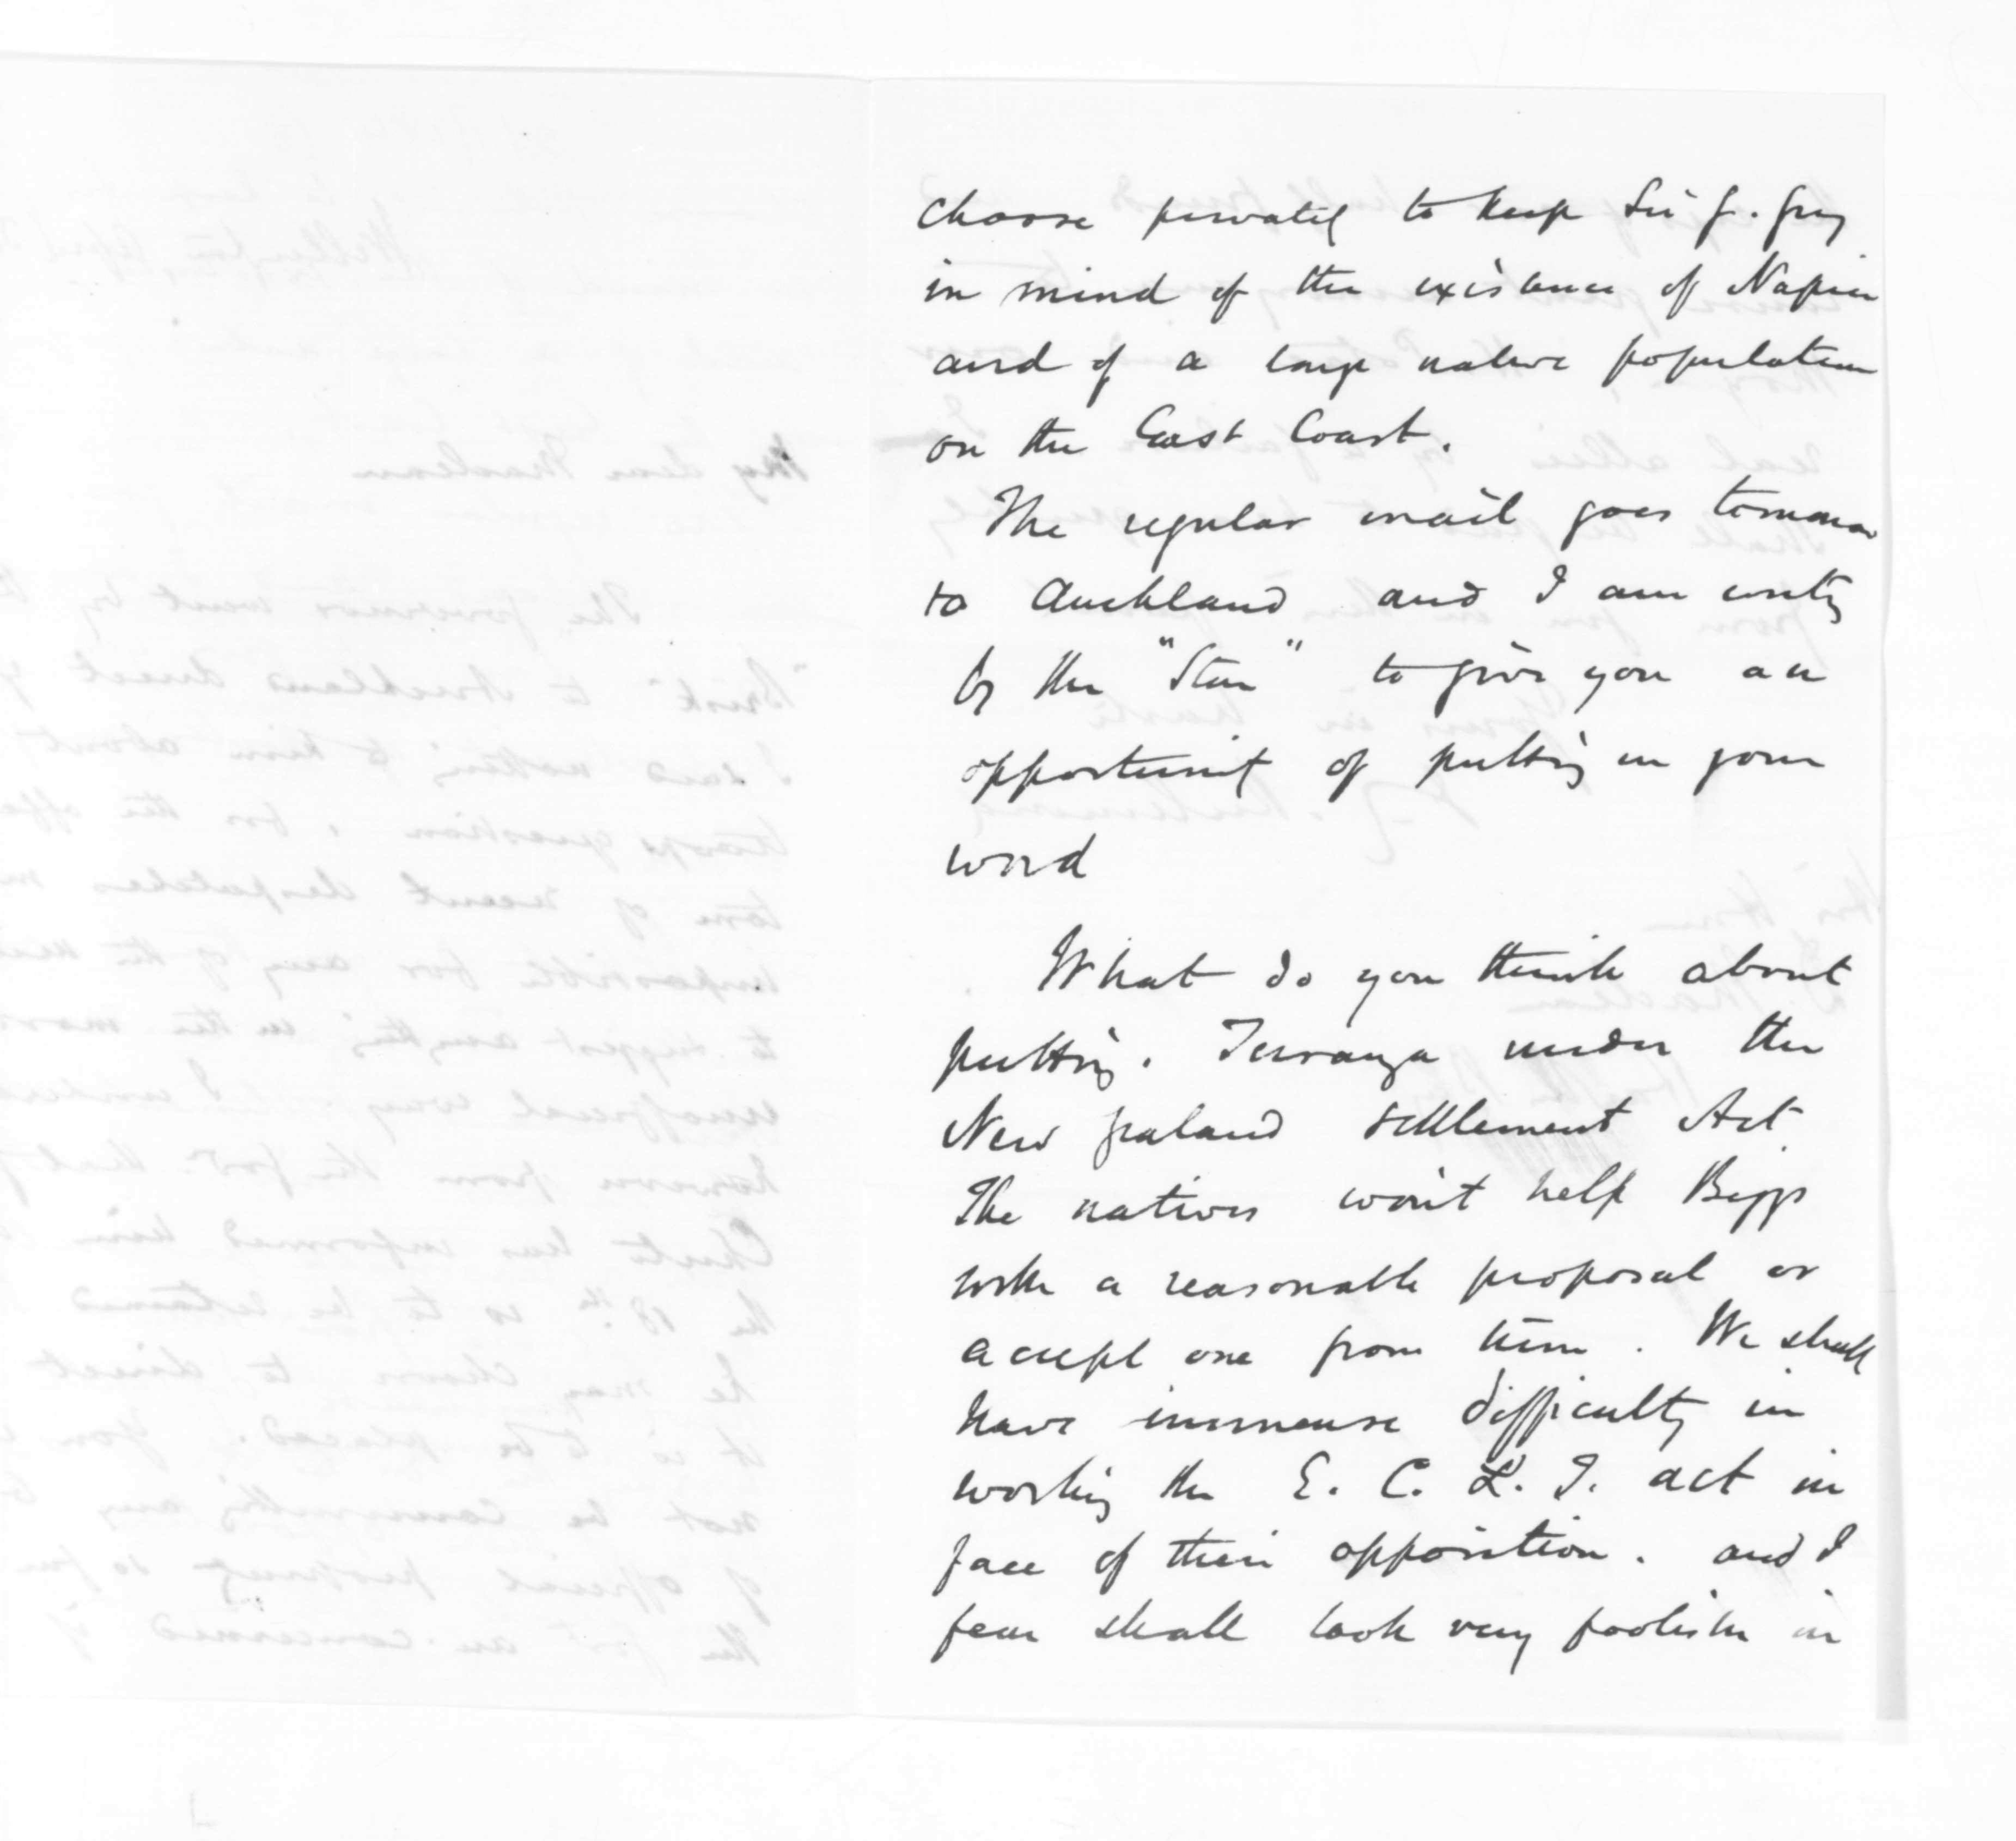 choose privately to keep Sir G. Grey
in mind of the existence of Napier
and of a large native population
on the East Coast.
The regular mail goes tomorrow
to Auckland and I am writing
by the "Star" to give you an
opportunity of putting in your
word
What do you think about
putting. Turanga under the
New Zealand Settlement Act.
The natives won't help Biggs
with a reasonable proposal or
accept one from him. We shall
have immense difficulty in
working the E. C. L. T. act in
face of their opposition. and I
fear shall look very foolish in